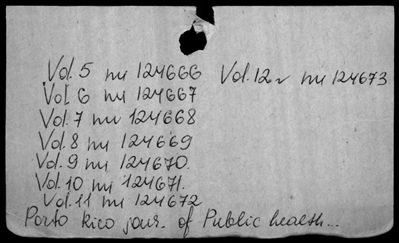 Vol. 5 nu 124666 Vol. 12 nu 124673
Vol. 6 nu 124667
Vol. 7 nu 124668
Vol. 8 nu 124669
Vol. 9 nu 124670.
Vol. 10 nu 124671.
Vol. 11 nu 124672
Porto Rico jour. of Public health...